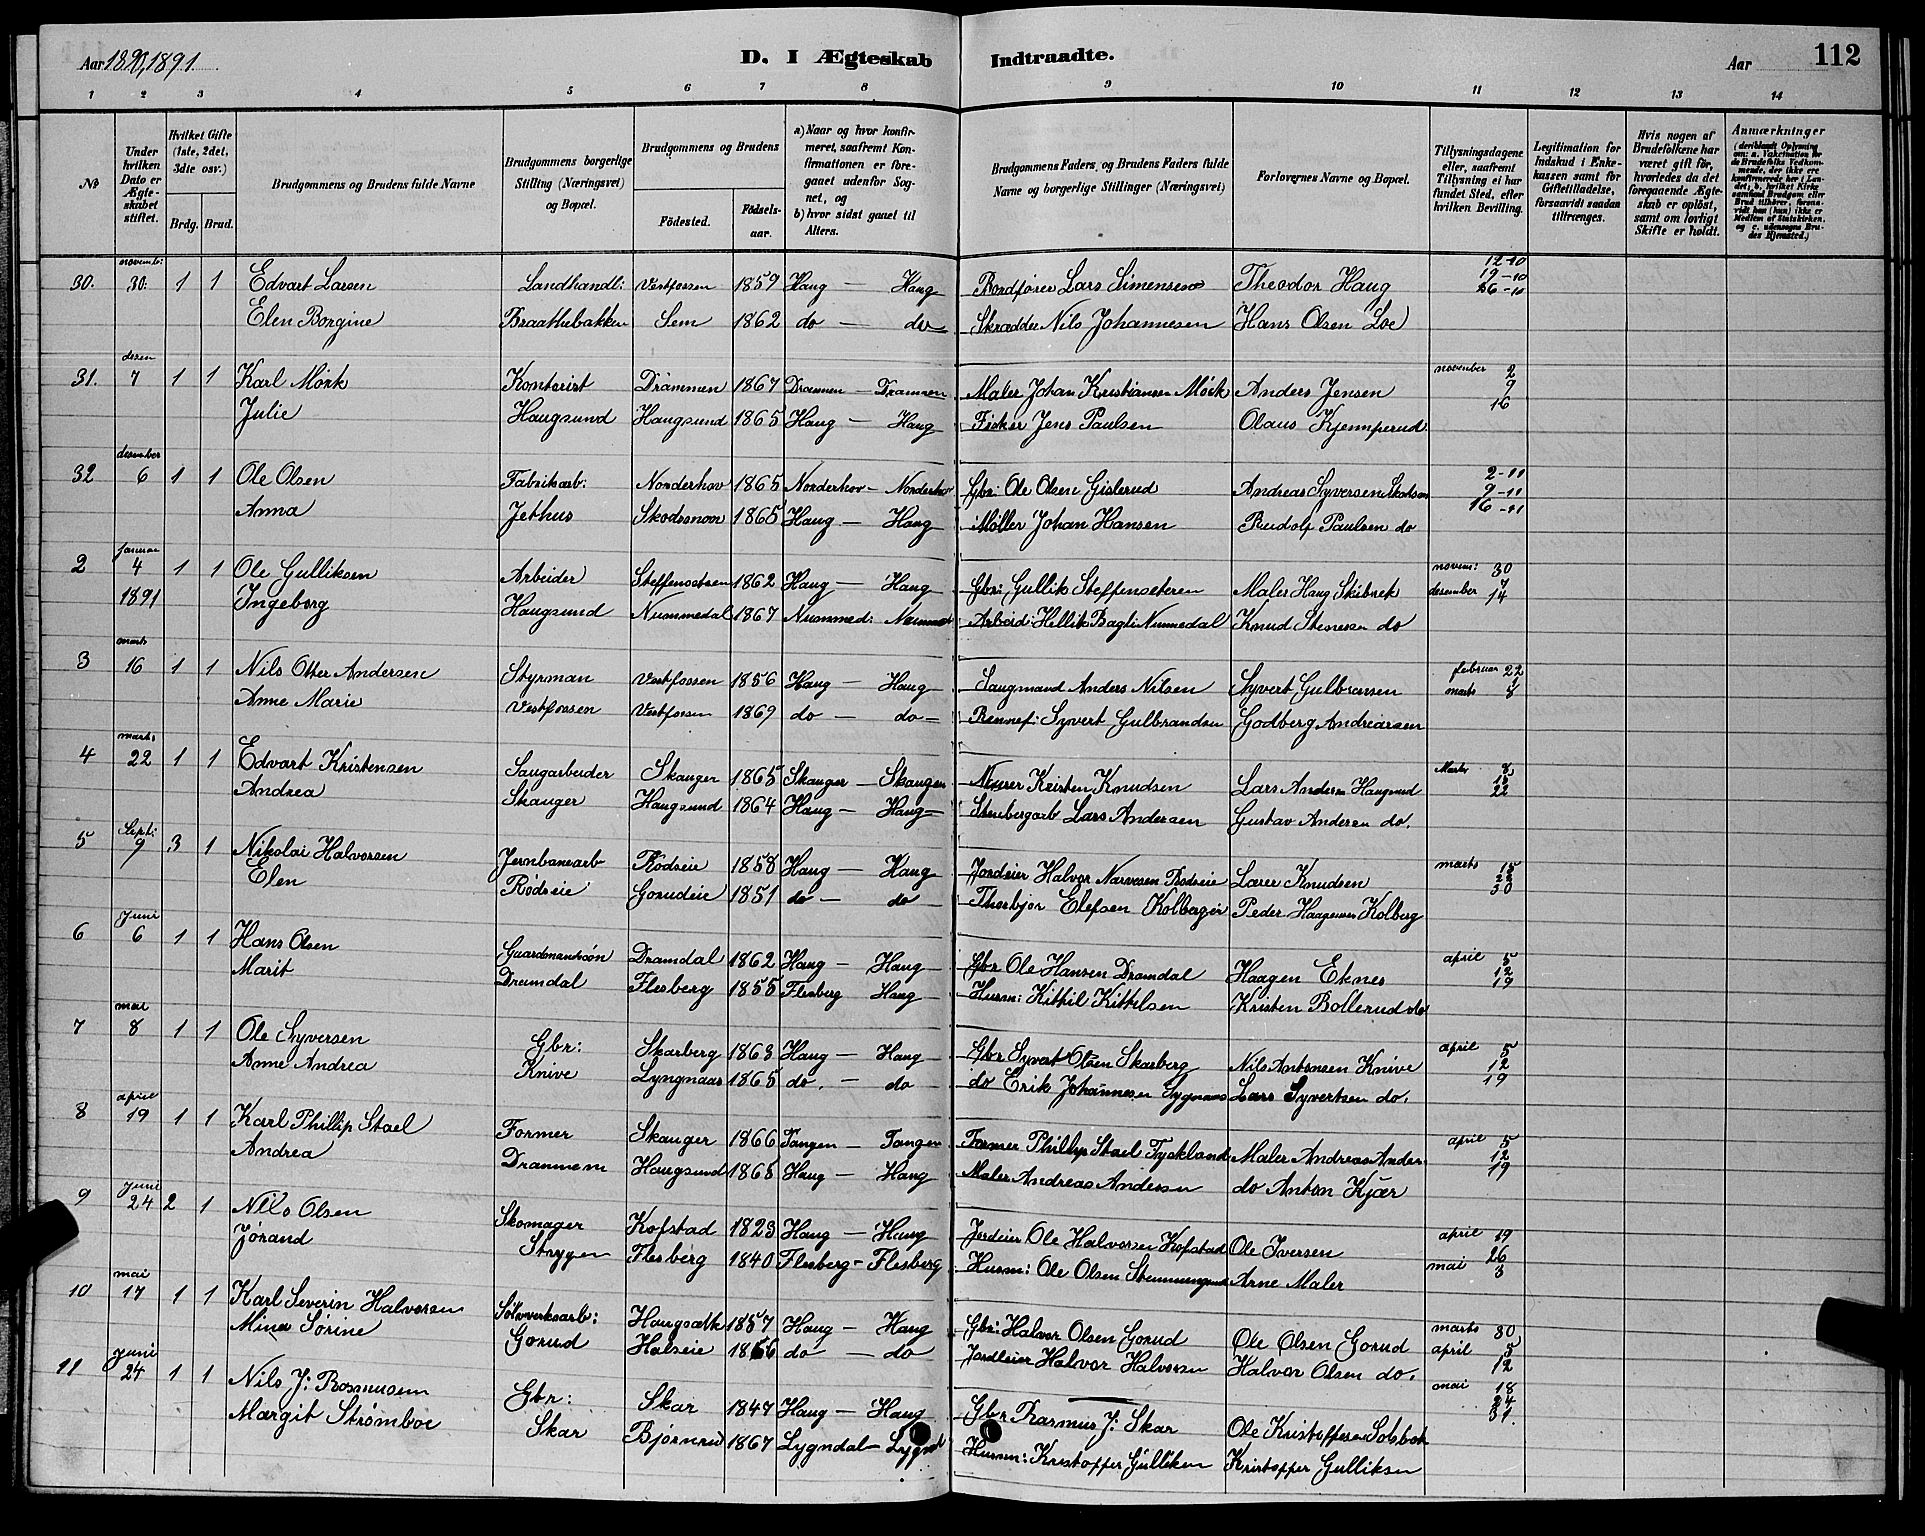 Aar 1890, 1891.
D. I Ægteskab Indtraadte.
Aar 112
1 2 3 4 5 6 7 8 9 10 11 12 13 14
No
Under hvilken Dato er Ægteskabet stiftet.
Hvilket Gifte (1ste, 2det, 3die osv.)
Brdg. Brud.
Brudgommens og Brudens fulde Navne
Brudgommens borgerlige Stilling (Næringsvei) og Bopæl.
Brudgommens og Brudens
Födested. Födsels-aar.
a) Naar og hvor konfirmeret, saafremt Konfirmationen er foregaaet udenfor Sognet, og
b) hvor sidst gaaet til Alters.
Brudgommens Faders, og Brudens Faders fulde Navne og borgerlige Stillinger (Næringsvei)
Forlovernes Navne og Bopæl.
Tillysningsdagene eller, saafremt Tillysning ei har fundet Sted, efter hvilken Bevilling.
Legitimation for Indskud i Enkekassen samt for Giftetilladelse, forsaavidt saadan tiltrænges.
Hvis nogen af Brudefolkene har været gift för, hvorledes da det foregaaende Ægteskab er oplöst, samt om lovligt Skifte er holdt.
Anmærkninger (deriblandt Oplysning om: a. Vakcination for de Brudefolks Vedkommende, der ikke ere konfirmerede her i Landet; b. hvilket Kirkesamfund Brudgom eller Brud tilhörer, forsaavidt han (hun) ikke er Medlem af Statskirken, og c. udensogns Brudes Hjemsted.)
novemb: 12-10
30. 30. 1 1 Edvart Larsen Landhandl: Vestfossen 1859 Haug — Haug Bordfører Lars Simensen Theodor Haug 19-10
26-10
Elen Borgine Braathebakken Sem 1862 do — do Skrædder Nils Johannesen Hans Olsen Loe
desem
31. 7 1 1 Karl Mørk Kontorist Drammen 1867 Drammen — Drammen Maler Johan Kristiansen Mørk Anders Jensen november 2
9
16
Julie Haugsund Haugsund 1865 Haug — Haug Fisker Jens Paulsen Olaus Kjemperud
desember
32 6 1 1 Ole Olsen Fabrikarb: Norderhov 1865 Norderhov — Norderhov Gbr: Ole Olsen Gislerud Andreas Syversen 2-11
9-11
16-11
Anna Jethus 1865 Haug — Haug Møller Johan Hansen Rudolf Paulsen do
januar
2 4 1 1 Ole Gulliksen Arbeider Steffensetren 1862 Haug — Haug Gbr: Gullik Steffenseteren Maler Haug novem: 30
desember 7
14
1891 Ingeborg Haugsund Nummedal 1867 Nummed: Nummed Arbeid: Hellik Nummedal Knud Stenersen do
marts
3 16 1 1 Nils Otter Andersen Styrman Vestfossen 1856 Haug — Haug Saugmand Anders Nilsen Syvert Gulbransen februar 22
marts 1
8
Anne Marie Vestfossen Vestfossen 1869 do — do — Syvert Gulbrandsen Godberg Andreassen
marts
4 22 1 1 Edvart Kristensen Saugarbeider Skauger 1865 Skauger — Skauger Murer Kristen Knudsen Lars Andersen Haugsund Marts 8
15
22
Andrea Skauger Haugsund 1864 Haug — Haug Stenbergarb Lars Andersen Gustav Andersen do.
Sept:
5 9 3 1 Nikolai Halvorsen Jernbanearb Rødseie 1858 Haug — Haug Jordeier Halvor Narvesen Rødseie Lærer Knudsen marts 15
22
30
Elen Rødseie Gorudeie 1851 do — do Thorbjør Elefsen Peder Haagensen Kolberg
Juni
6 6 1 1 Hans Olsen Gaardmandssøn Dramdal 1862 Haug — Haug Gbr Ole Hansen Dramdal Haagen Eknes april 5
12
19
Marit Dramdal Flesberg 1855 Flesberg Haug Husm: Kittil Kittilsen Kristen Bollerud do
mai
7 8 1 1 Ole Syversen Gbr: Skarberg 1863 Haug — Haug Gbr Syvert Olsen Skarberg Nils Antonsen Knive april 5
12
19
Anne Andrea Knive Lyngnaas 1865 do. — do do Erik Johannesen Lygnaas Lars Syvertsen do.
april
8 19 1 1 Karl Phillip Stael Former Skauger 1866 Tangen — Tangen Former Phillip Stael Tyskland Maler Andreas Ander april 5
12
19
Andrea Drammen Haugsund 1865 Haug — Haug Maler Andreas Andersen do Anton Kjær
Juni
9 24 2 1 Nils Olsen Skomager Kofstad 1823 Haug — Haug Jordeier Ole Halvorsen Kofstad Ole Iversen april 19
26
mai 3
Jørand Strygen Flesberg 1840 Flesberg — Flesberg Husm: Ole Olsen Arne Maler
mai
10 17 1 1 Karl Severin Halvorsen Sølvverksarb: 1857 Haug — Haug Gbr: Halvor Olsen Gorud Ole Olsen Gorud marts 30
april 5
12
Mina Sørine Gorud Halseie 1866 do — do Jordleier Halvor Halvorsen Halvor Olsen do.
Juni
11 24 1 1 Nils J: Rasmusen Gbr: Skar 1847 Haug — Haug Gbr Rasmus J: Skar Ole Kristoffersen mai 18
24
31.
Margit Strømboe Skar Bjørnrud 1867 Lygndal — Lygnd Husm: Kristoffer Gulliksen Kristoffer Gulliksen